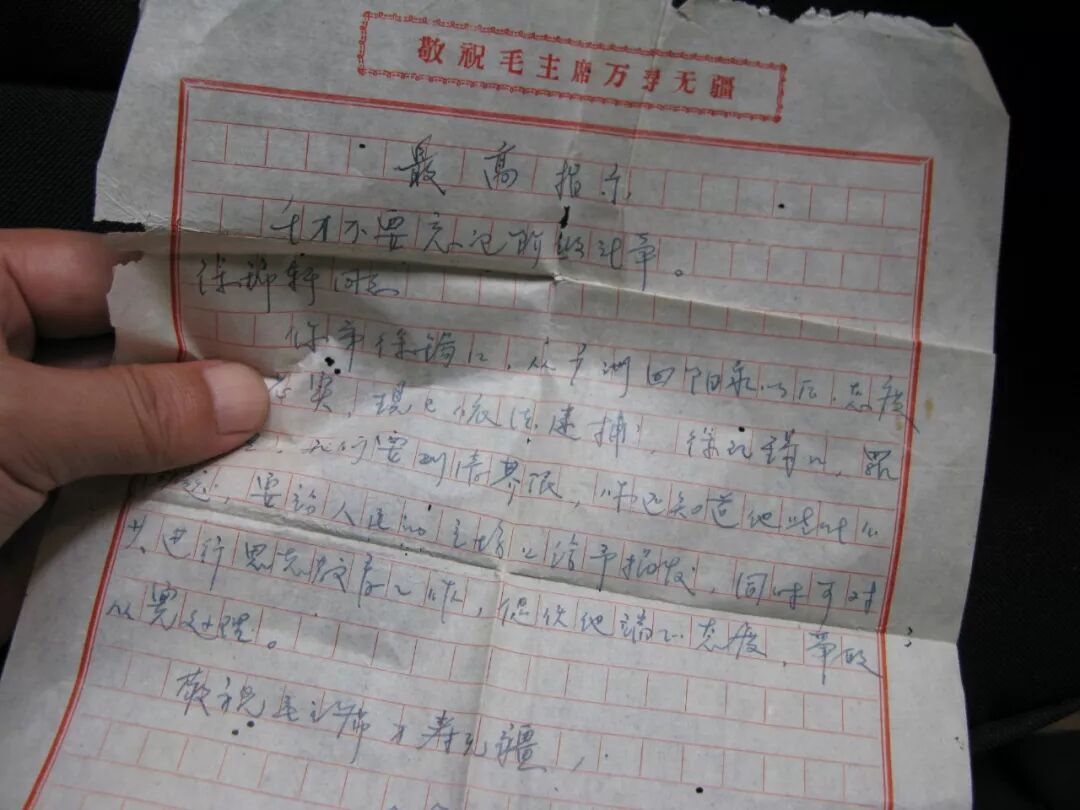 敬祝毛主席万寿无疆
最高指示
千万不要忘记阶级斗争。
徐 同志
你 徐锦江，从广州回阳泉以后，态度
实，现已依法逮捕，徐 锦江，罪
要划清界限，你还知道他些什么
，要站人民的立场上给予揭发，同时可对
其进行思想教育工作，促使他端正态度，争取
从宽处理。
敬祝毛主席万寿无疆，